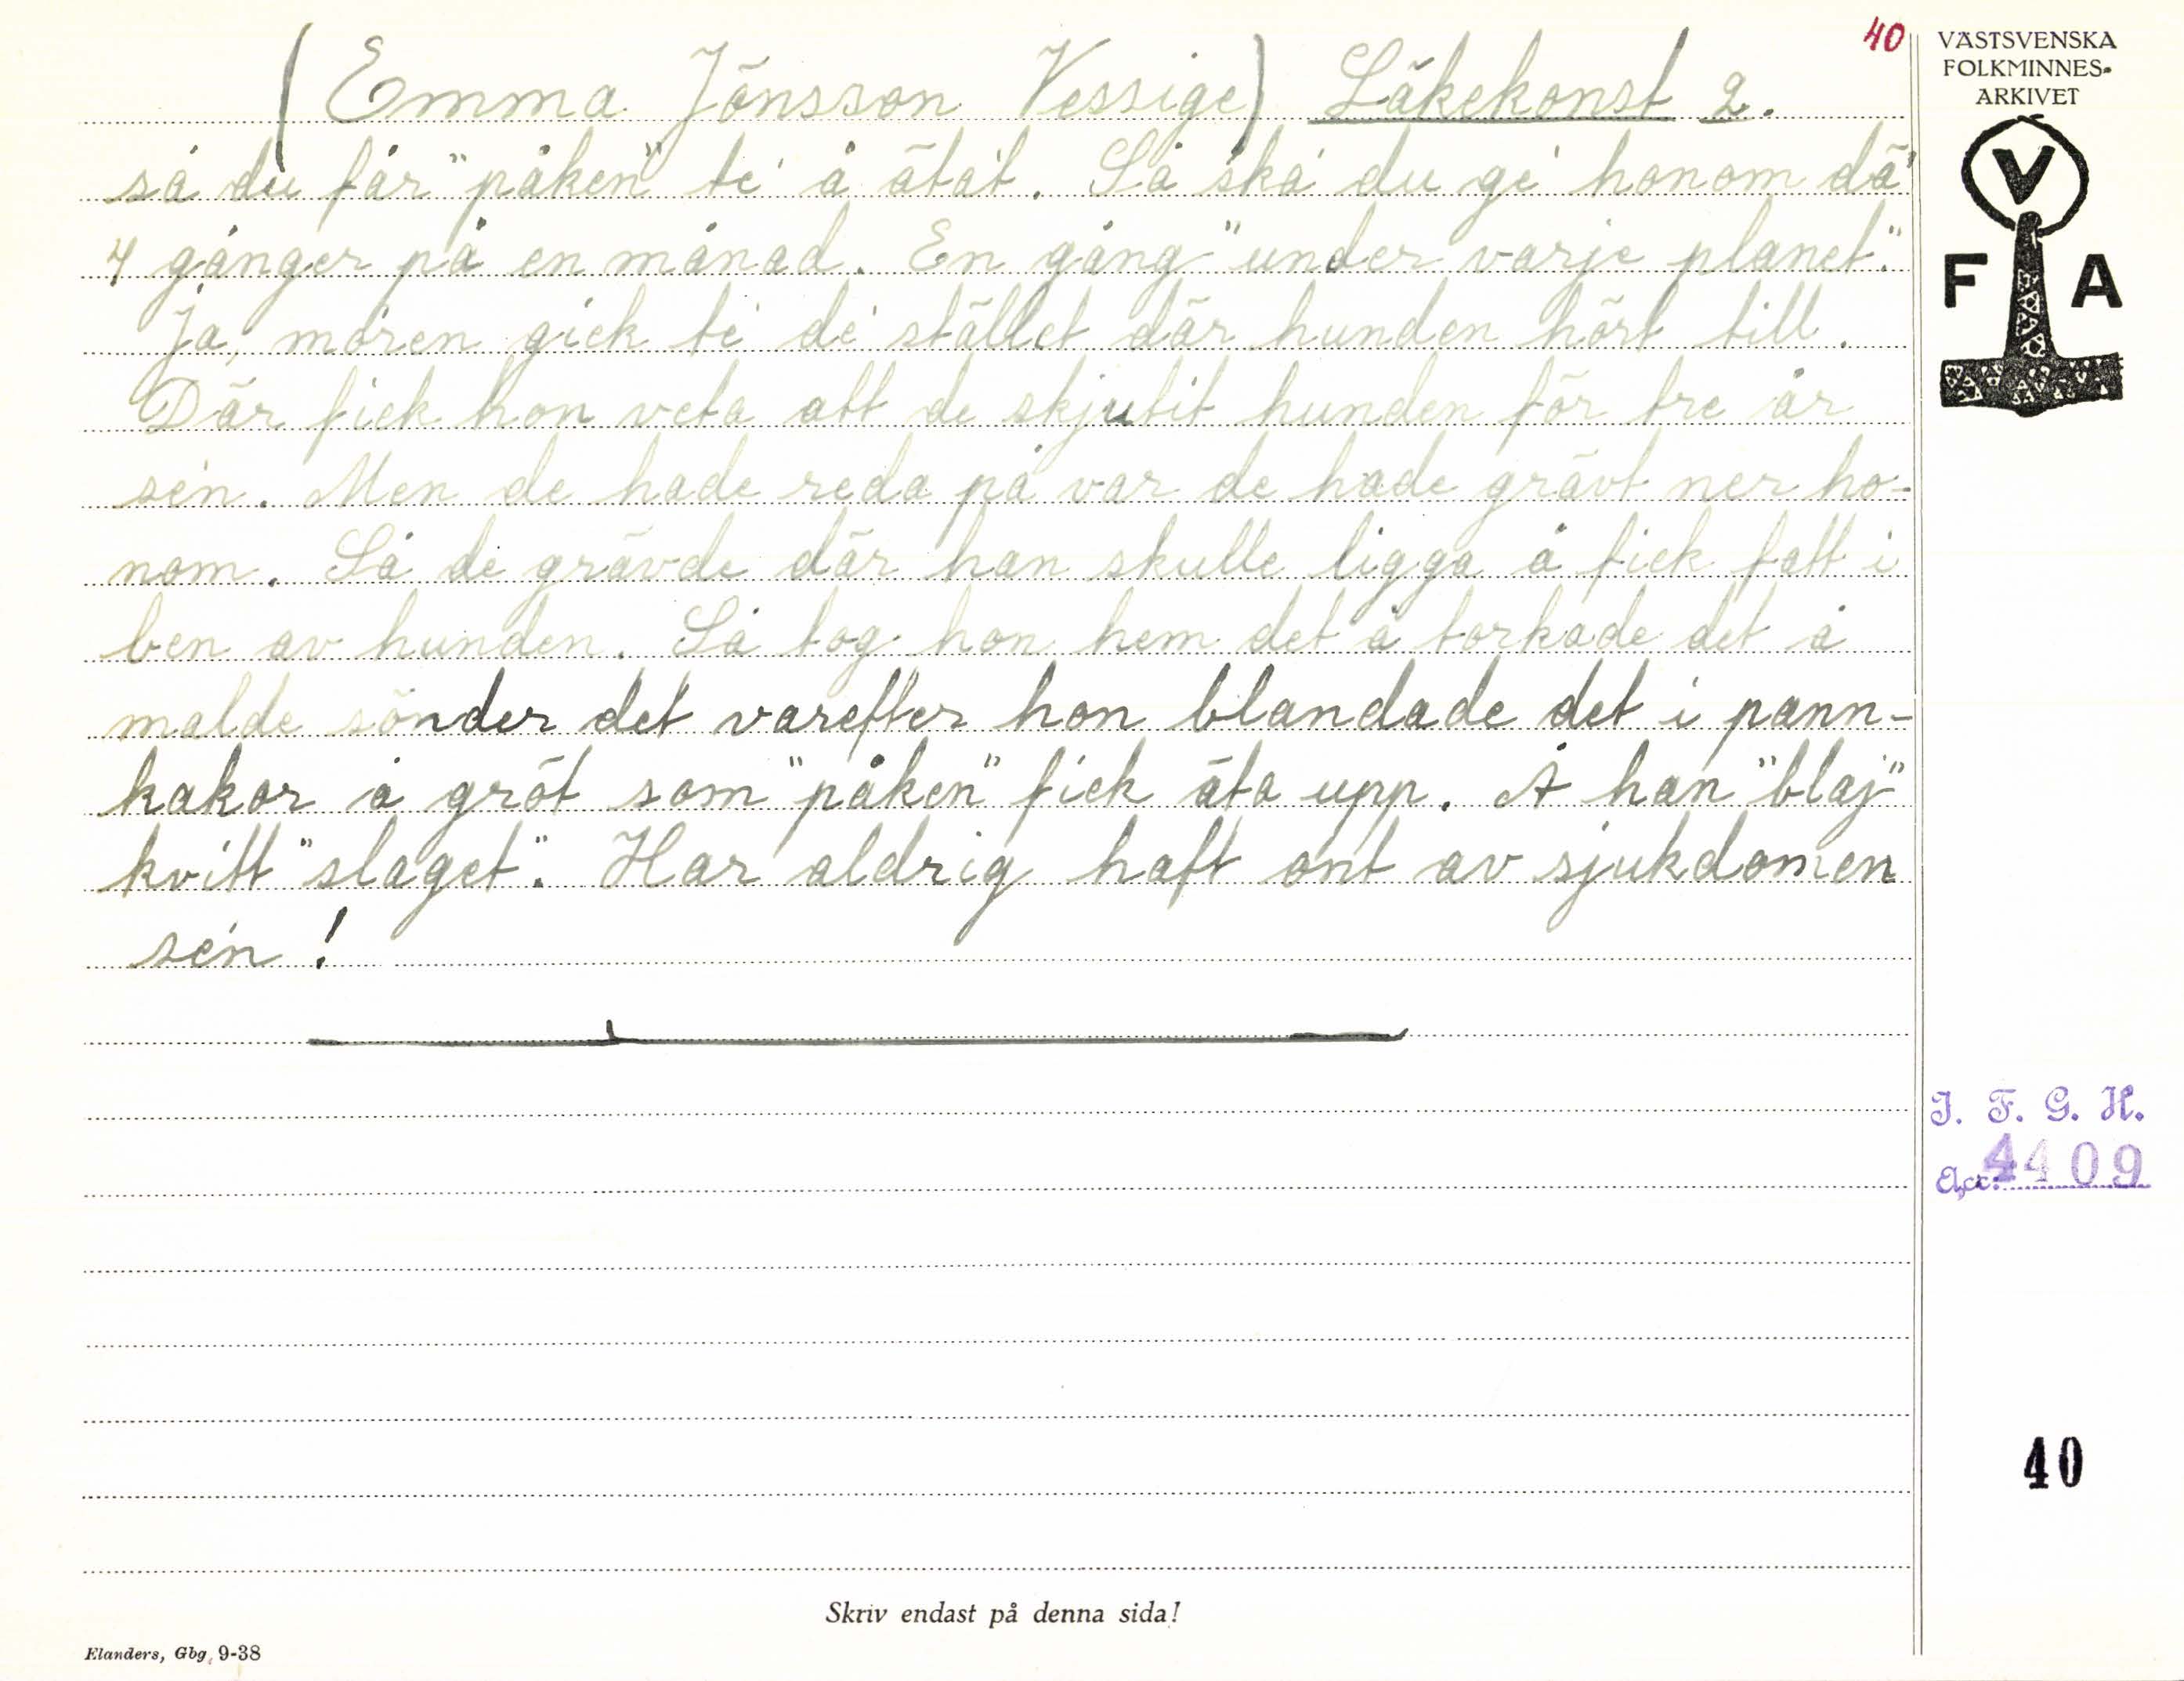 40
(Emma Jönsson Vessige) Läkekonst 2.
så du får "påken" te' å ätat. Så ska' du ge' honom dä'
4 gånger på en månad. En gång "under varje planet".
Ja, moren gick te' de' stället där hunden hört till.
Där fick hon veta att de skjutit hunden för tre år
sén. Men de hade reda på var de hade grävt ner ho-
nom. Så de grävde där han skulle ligga å fick fatt i
ben av hunden. Så tog hon hem det å torkade det å
malde sönder det varefter hon blandade det i pann-
kakor å gröt som "påken" fick äta upp. Å han "blaj"
kvitt "slaget". Har aldrig haft ont av sjukdomen
sén!
VÄSTSVENSKA
FOLKMINNES-
ARKIVET
V
F A
I. F. G. H.
Acc. 4409
40
Skriv endast på denna sida!
Elanders, Gbg, 9-38